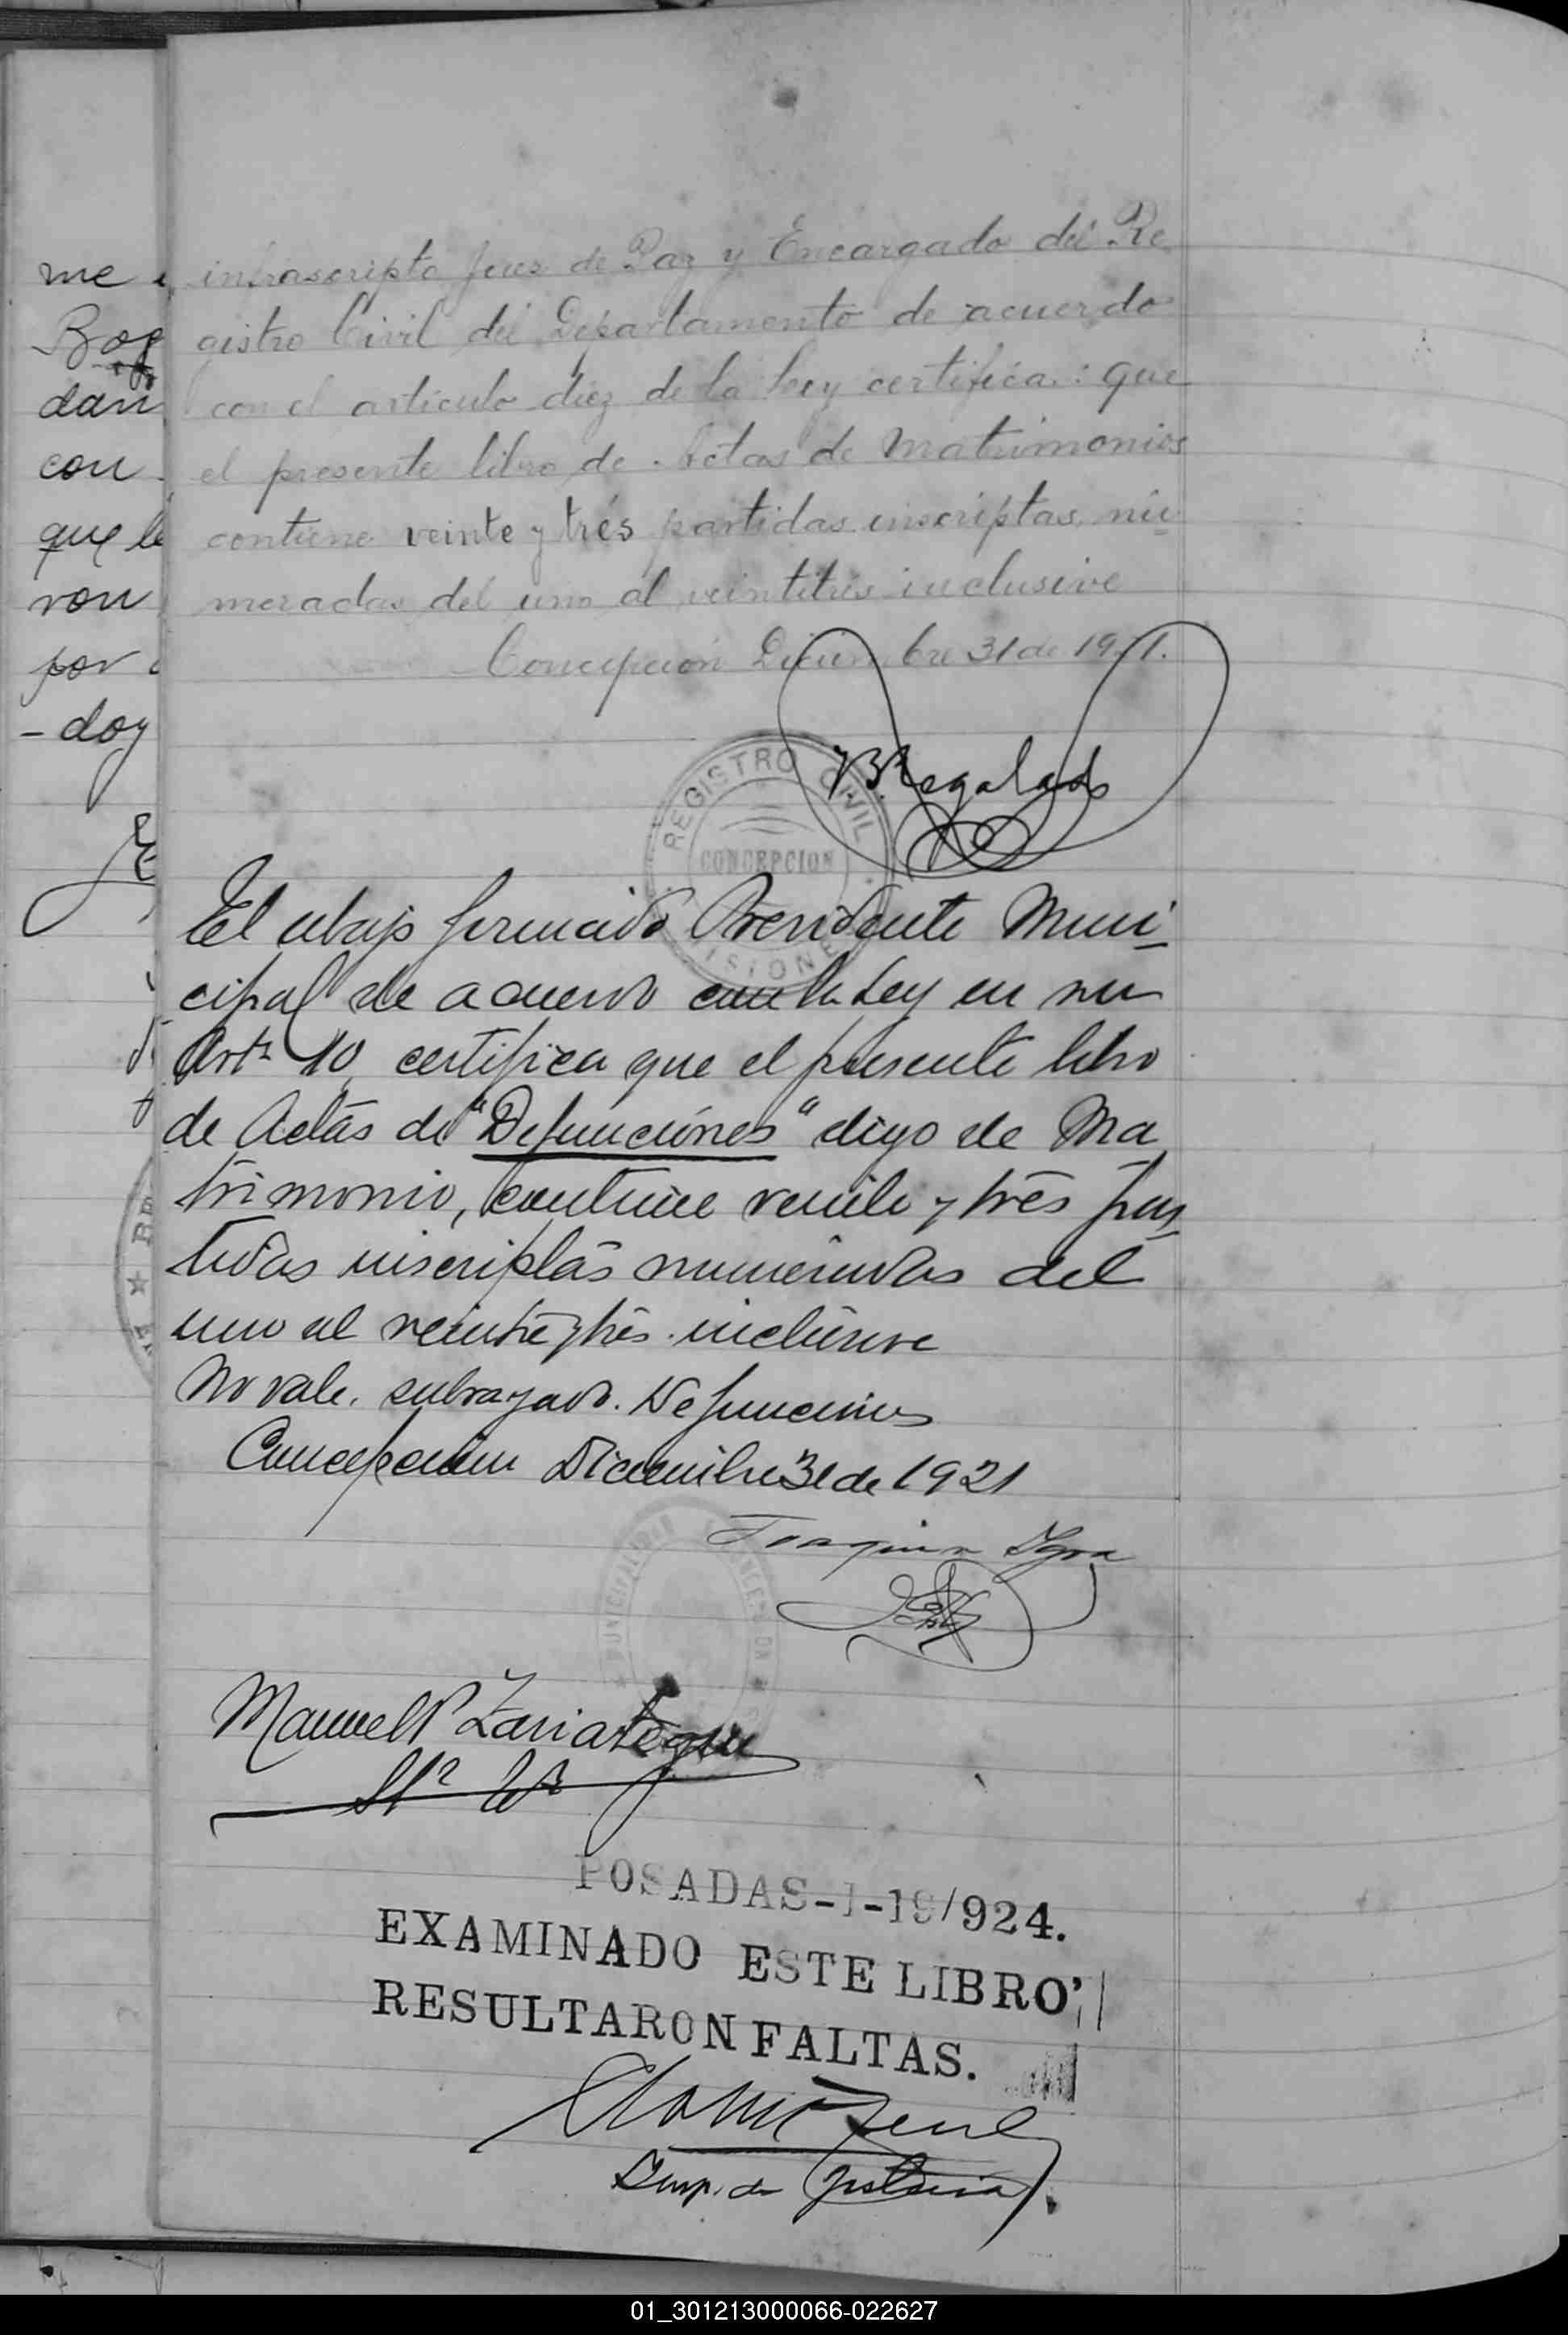 infrascripto Juez de Paz y Encargado del Re
gistro Civil del Departamento de acuerdo
con el articulo diez de la ley certifica: que
el presente libro de Actas de Matrimonios
contiene veinte y trés partidas inscriptas nu
meradas del uno al veintitres inclusive
Concepción Diciembre 31 de 1921.
REGISTRO CIVIL
CONCEPCION
MISIONES
Regalado
El abajo firmado Presidente Muni
cipal de acuerdo con la Ley en su
Art 10 certifica que el presente libro
de Actas de "Defunciónes" digo de Ma
trimonio, contiene veinte y trés par
tidas inscriptas numeradas del
uno al veinte y tres inclusive
No vale. subrayado. Defunciones
Concepcion Diciembre 31 de 1921
Joaquin
MUNICIPALIDAD
Manuel P Zariategui
POSADAS-1-19/924.
EXAMINADO ESTE LIBRO
RESULTARON FALTAS.
Insp. de Justicia
me
dan
con
que le
ron
por
- doy
01_301213000066-022627